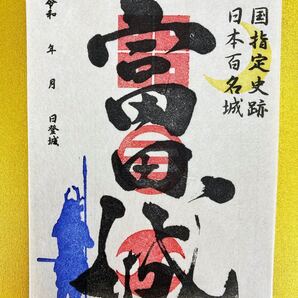 国指定史跡
日本百名城
富田城
令和 年 月 日登城